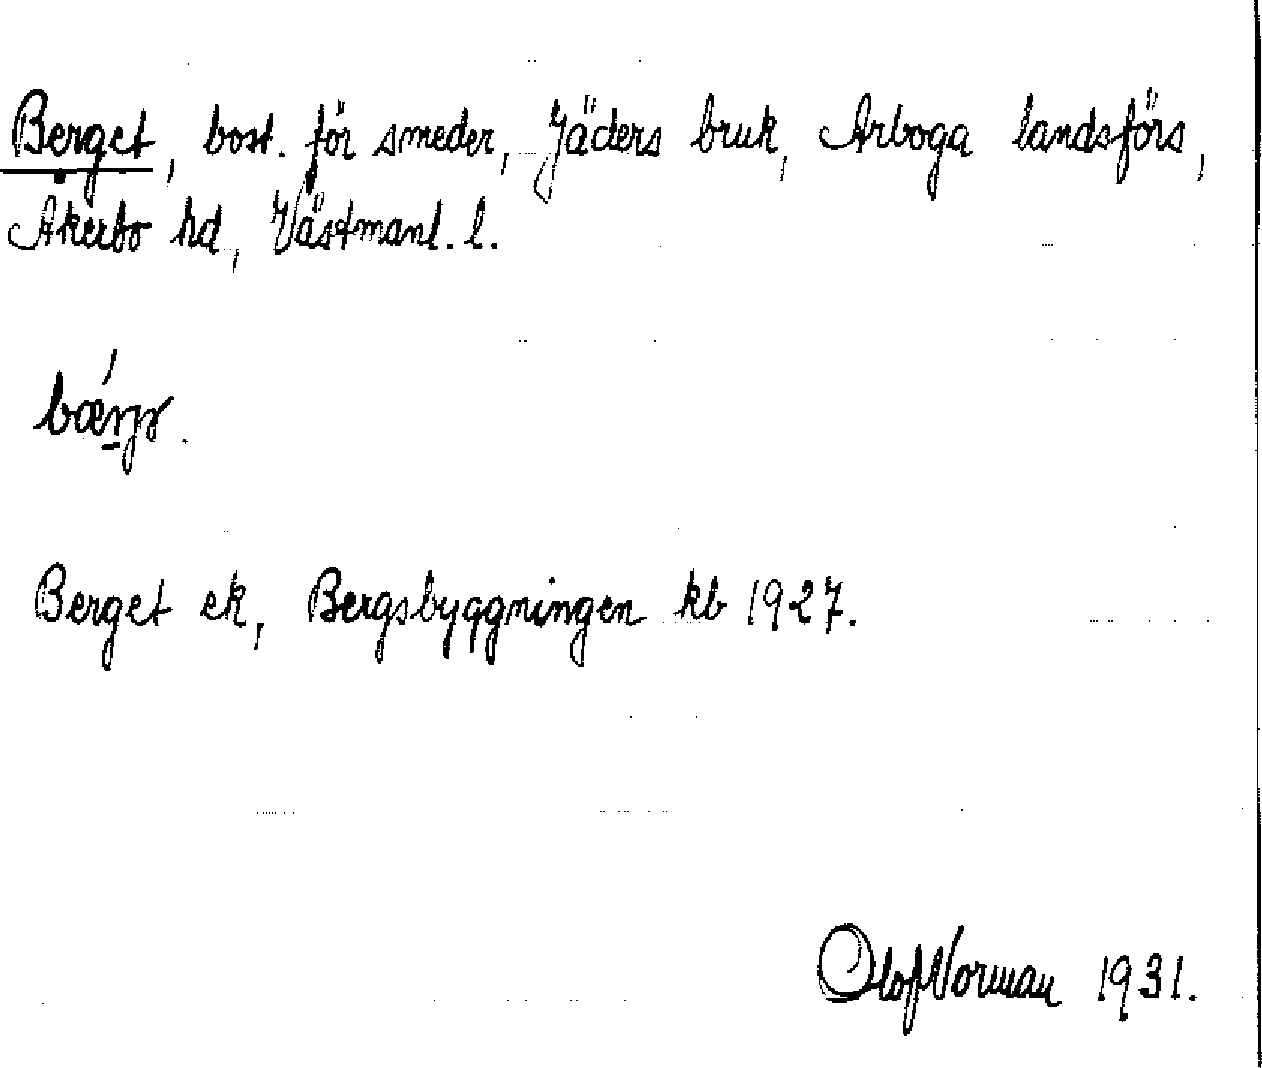 Berget, bost. för smeder, Jäders bruk, Arboga landsförs,
Akerbo hd, Västmanl. l.
Berget ek, Bergsbyggningen kb 1927.
Olof Norman 1931.